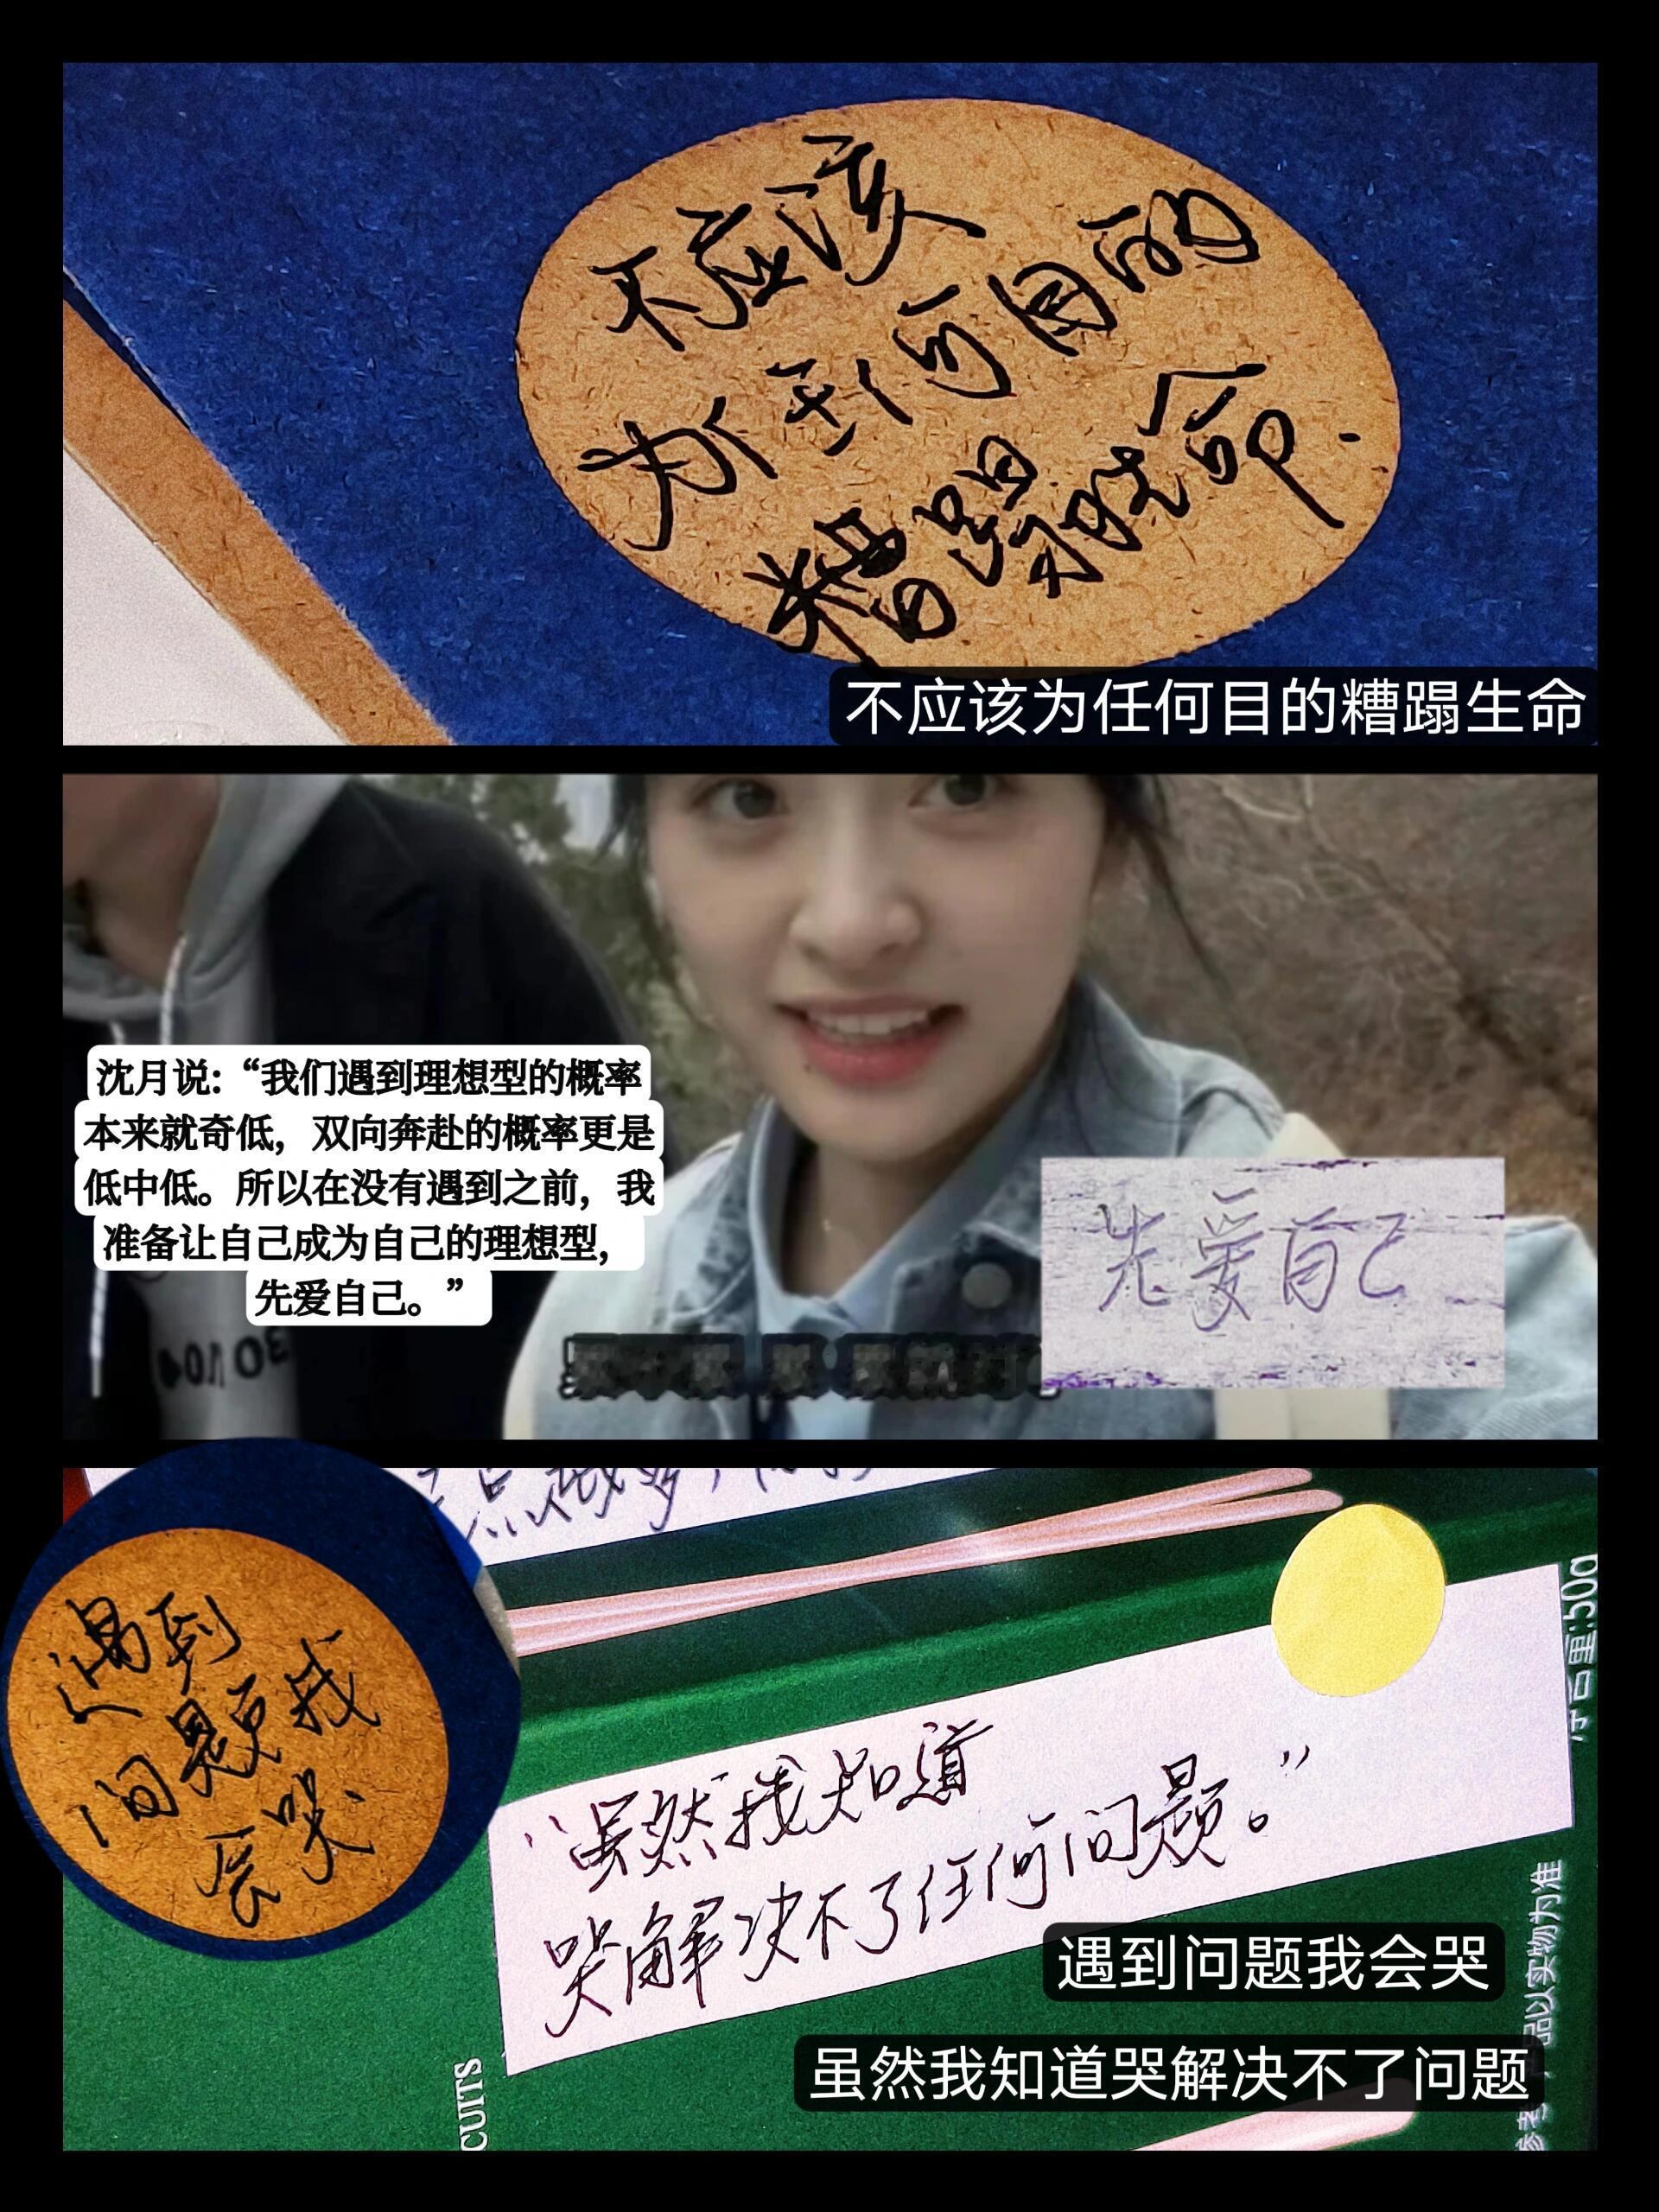 不应该
为任何目的
糟蹋牲命.
不应该为任何目的糟蹋生命
沈月说:“我们遇到理想型的概率
本来就奇低，双向奔赴的概率更是
低中低。所以在没有遇到之前，我
准备让自己成为自己的理想型，
先爱自己。”
先爱自己
遇到
问题我
会哭.
“虽然我知道
哭解决不了任何问题。”
遇到问题我会哭
虽然我知道哭解决不了问题
CUITS
品以实物为准